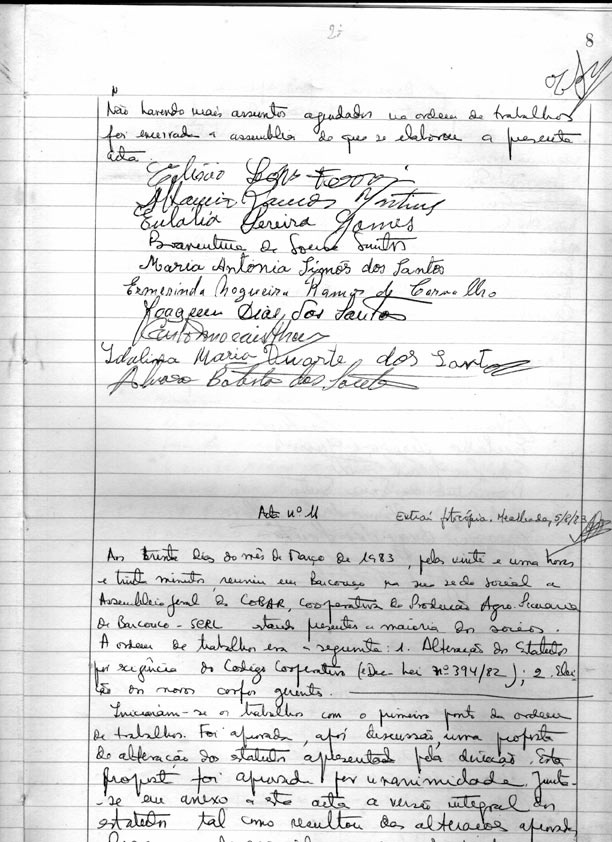 8
Não havendo mais assuntos agendados na ordem de trabalhos
foi encerrada a assembleia de que se elaborou a presente
acta.
Eulália Pereira Gomes
Boaventura de Sousa Santos
Maria Antónia Pignós dos Santos
Ermerinda Nogueira Ramos de Carvalho
Joaquim Dias dos Santos
Idalina Maria Duarte dos Santos
Alvaro Batista dos Santos
Acta nº 11
Extraí fotocópia. Mealhada, 5/8/83
Aos trinta dias do mês de Março de 1983, pelas vinte e uma horas
e trinta minutos, reuniu em Barcouço na sua sede social a
Assembleia Geral da COBAR, Cooperativa de Produção Agro-Pecuária
de Barcouço - SCRL estando presentes a maioria dos sócios.
A ordem de trabalhos era a seguinte: 1. Alteração dos Estatutos
por exigência do Código Cooperativo (Dec. Lei nº 394/82); 2. Elei-
ção dos novos corpos gerentes.
Iniciaram-se os trabalhos com o primeiro ponto da ordem
de trabalhos. Foi aprovada, após discussão, uma proposta
de alteração dos estatutos apresentada pela direcção. Esta
proposta foi aprovada por unanimidade. Junta-
-se em anexo a esta acta a versão integral dos
estatutos tal como resultou das alterações aprovadas